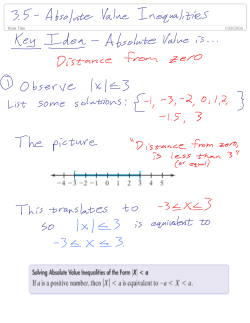 3.5 - Absolute Value Inequalities
Key Idea - Absolute Value is...
Distance from zero
① Observe |x| ≤ 3
List some solutions: {-1, -3, -2, 0, 1, 2, }
-1.5, 3
The picture
"Distance from zero,
is less than 3"
(or equal)
-4 -3 -2 -1 0 1 2 3 4 5
This translates to -3 ≤ x ≤ 3
so |x| ≤ 3 is equivalent to
-3 ≤ x ≤ 3.
Solving Absolute Value Inequalities of the Form |X| < a
If a is a positive number, then |X| < a is equivalent to -a < X < a.